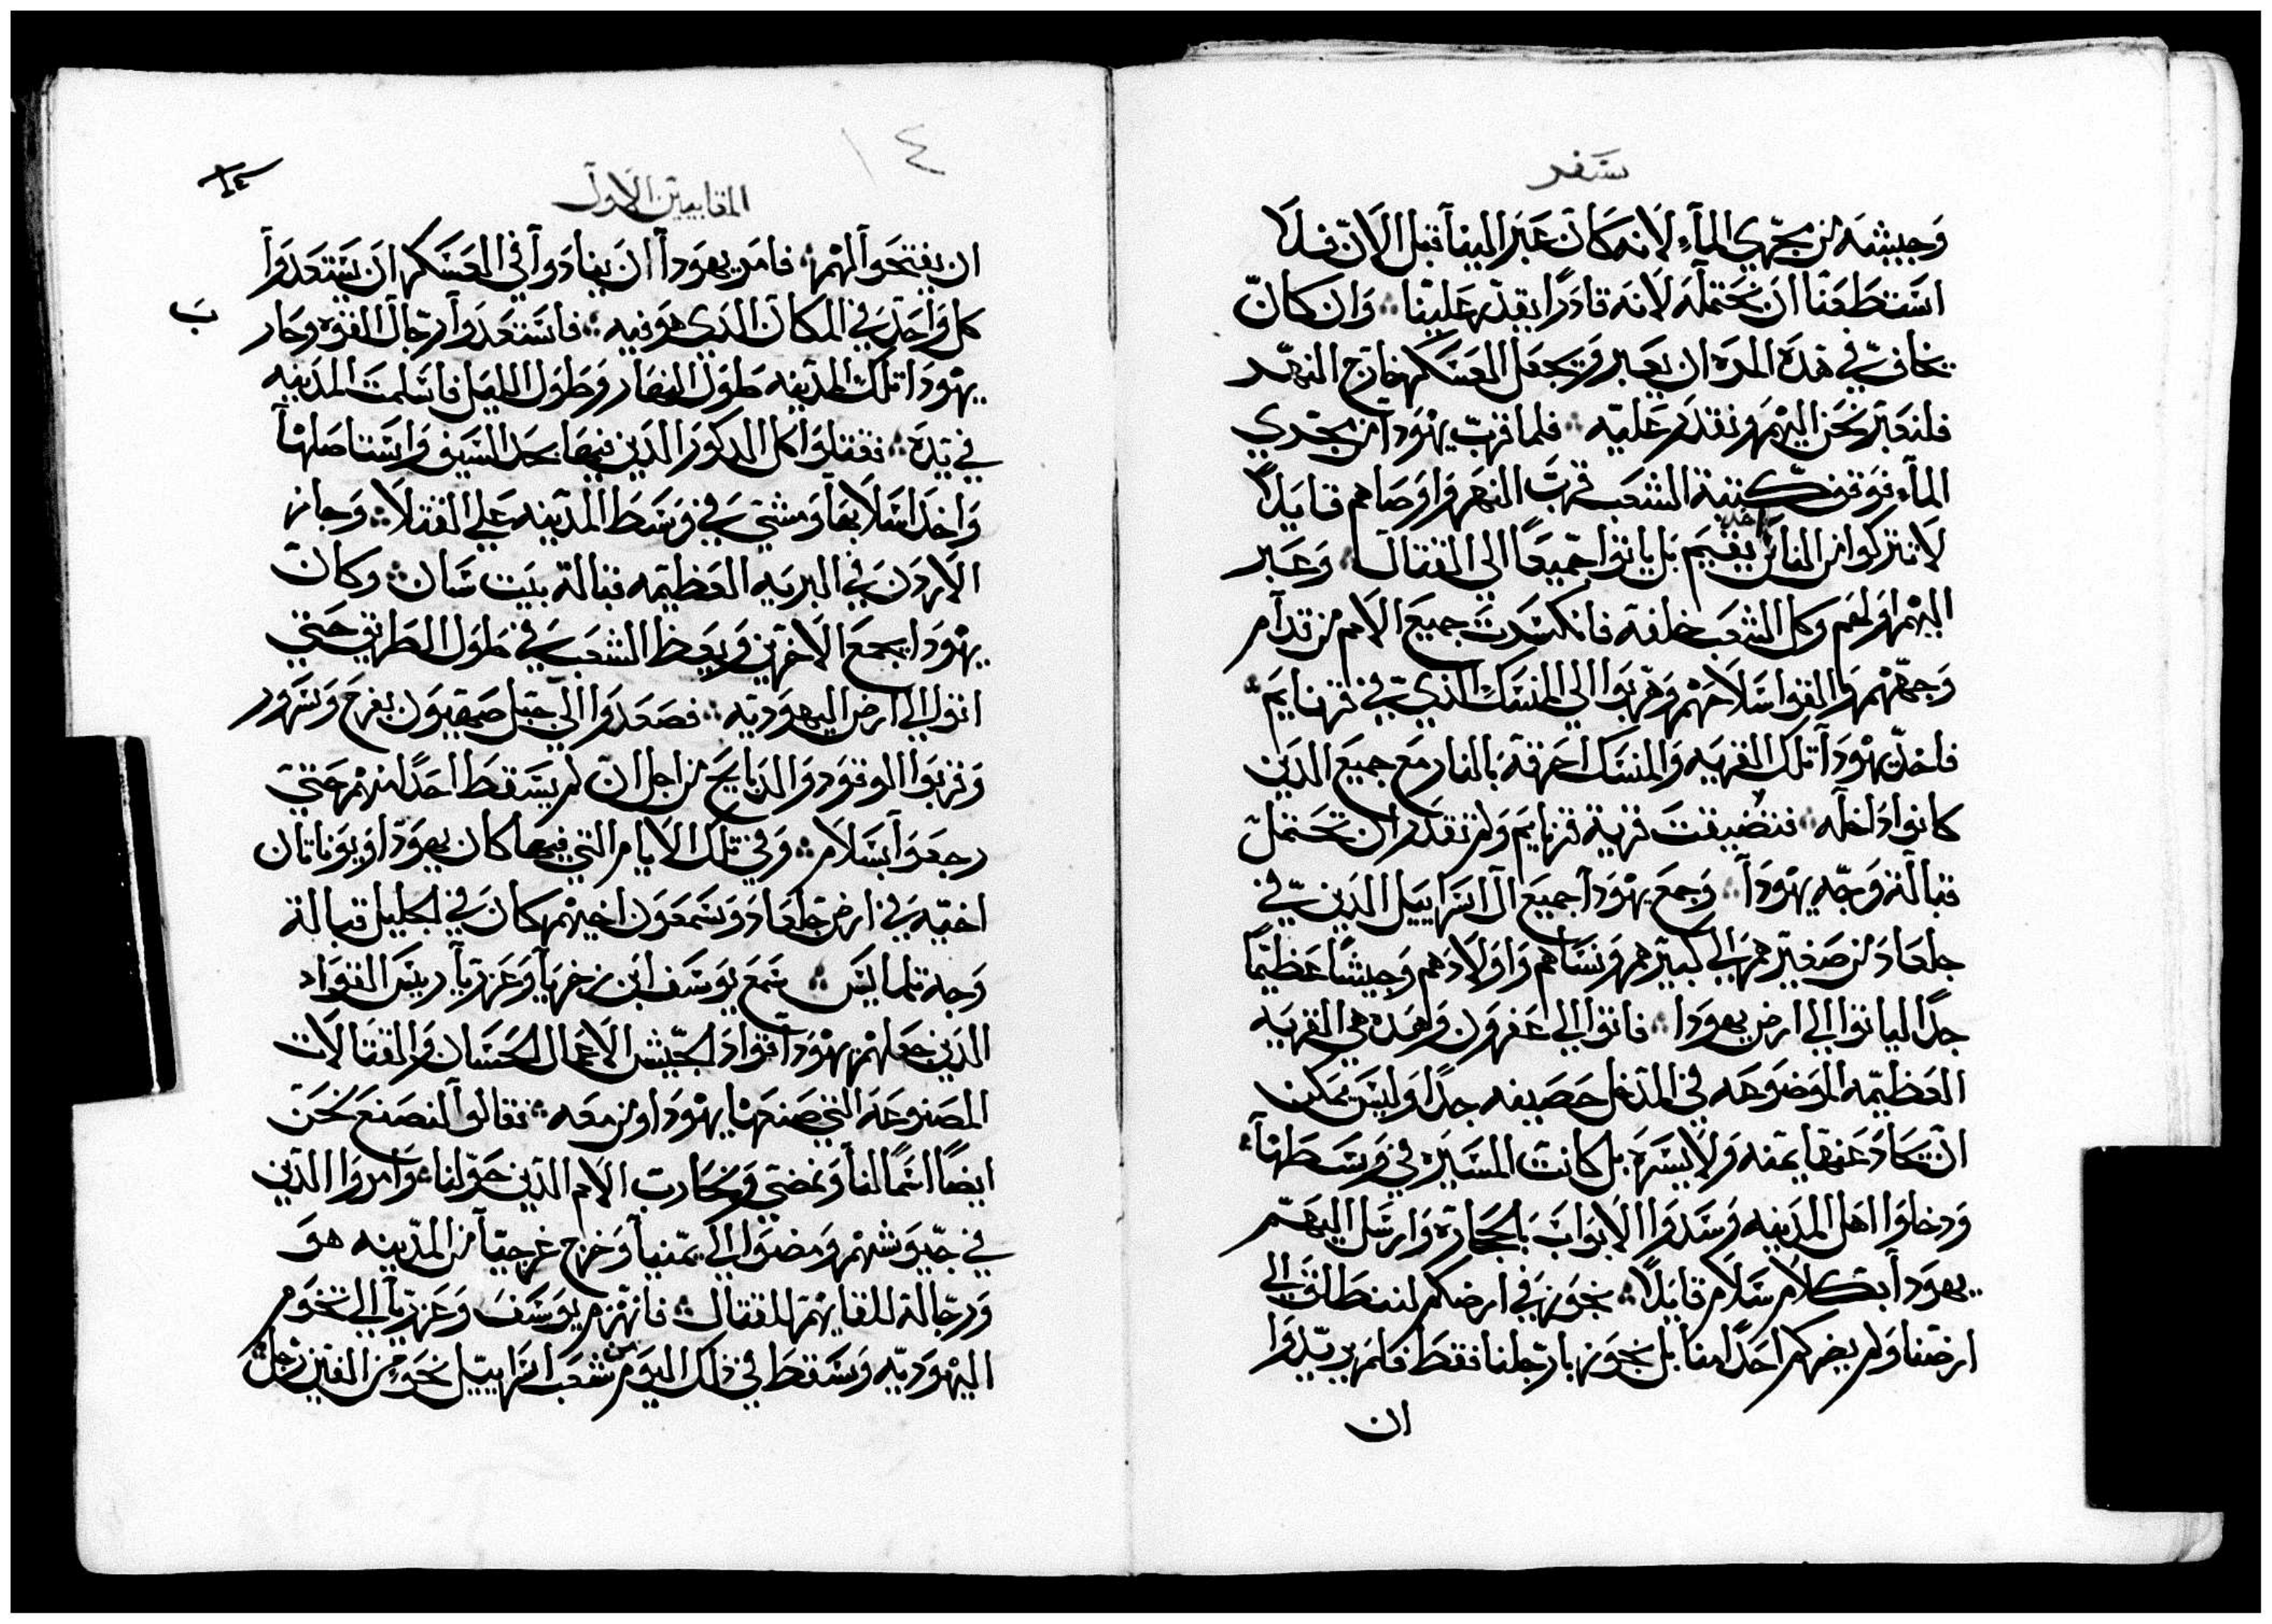 سفر
وجيشه من مجري المآء لانه كان عبر الينا قبل الان فلا
استطعنا ان نحتمله لانه قادرًا بقدره علينا ⁘ وان كان
يخاف في هذه المره ان يعبر ويجعل العسكر خارج النهر
فلنعبر نحن اليهم ونقدر عليه ⁘ فلما قرب يهودا من مجري
المآء فوقف كتبة الشعب قرب النهر واوصاهم قايلاً
لا تتركوا من الناس احد يقيم بل ياتوا جميعًا الي القتال ⁘ وعبر
اليهم اولهم وكل الشعب خلفه فانكسرت جميع الامم من قدام
وجههم والقوا سلاحهم وهربوا الي المنسك الذي في قرنايم
فاخذ يهودا تلك القريه والمنسك احرقه بالنار مع جميع الذين
كانوا داخله ⁘ فتضيقت قرية قرنايم ولم تقدر ان تحتمل
قبالة وجه يهودا ⁘ وجمع يهودا جميع ال اسراييل الذين في
جلعاد من صغيرهم الي كبيرهم ونساهم واولادهم وجيشًا عظيمًا
جدًا لياتوا الي ارض يهودا ⁘ فاتوا الي عفرون وهذه هي القريه
العظيمه الموضوعه في المدخل حصينه جدًا وليس يمكن
ان تحاد عنها يمنه ولا يسره بل كانت المسيره في وسطها
ودخلوا اهل المدينه وسدوا الابواب بالحجاره وارسل اليهم
يهودا بكلام سلام قايلاً ⁘ نجوز في ارضكم لننطلق الي
ارضنا ولم يضركم احدًا منا بل نجوز بارجلنا فقط فلم يريدوا
ان
١٤
المقابيين الاول
ان يفتحوا لهم ⁘ فامر يهودا ان ينادوا في العسكر ان يستعدوا
ب
كل واحد في المكان الذي هو فيه ⁘ فاستعدوا رجال القوه وحار
يهودا تلك المدينه طول النهار وطول الليل فاسلمت المدينه
في يده ⁘ فقتلوا كل الذكور الذين فيها بحد السيف واستاصلها
واخذ اسلابها ومشي في وسط المدينه علي القتلا ⁘ وجاز
الاردن في البريه العظيمه قبالة بيت شان ⁘ وكان
يهودا يجمع الاخرين ويعظ الشعب في طول الطريق حتي
اتوا الي ارض اليهوديه ⁘ فصعدوا الي جبل صهيون بفرح وسرور
وقربوا الوقود والذبايح من اجل ان لم يسقط احدًا منهم حتي
رجعوا بسلام ⁘ وفي تلك الايام التي فيها كان يهودا ويوناتان
اخيه في ارض جلعاد وسمعون اخيهم كان في الجليل قبالة
وجه تلمايس ⁘ سمع يوسف ابن زخريا وعزريا ريس القواد
الذين جعلهم يهودا قواد الجيش الاعمال الحسان والقتالات
المصنوعه التي صنعها يهودا ومن معه ⁘ فقالوا لنصنع نحن
ايضًا اسمًا لنا ونمضي ونحارب الامم الذين حولنا ⁘ وامروا الذين
في جيوشهم ومضوا الي يمنيا وخرج غرجيا من المدينه هو
ورجالة للقايهم للقتال ⁘ فانهزم يوسف وعزريا الي تخوم
اليهوديه وسقط في ذلك اليوم من شعب اسراييل نحو من الفين رجل